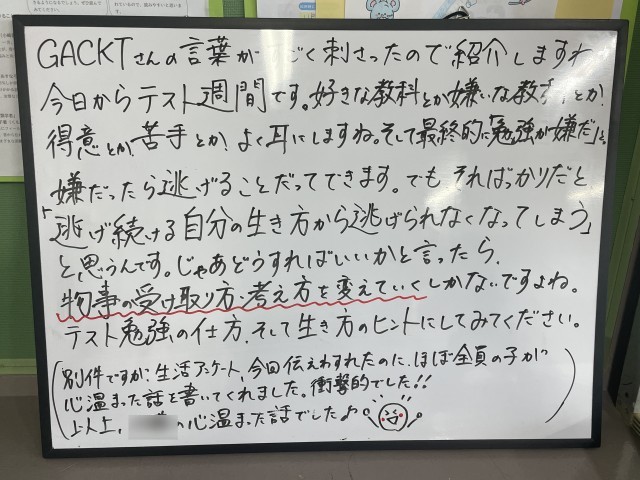 GACKTさんの言葉が ごく刺さったので紹介しますね
今日からテスト週間です。好きな教科とか嫌いな教 とか、
得意とか、苦手とか、よく耳にしますね。そして最終的に「勉強が嫌だ」と。
嫌だったら逃げることだってできます。でもそればっかりだと
「逃げ続ける自分の生き方から逃げられなくなってしまう」
と思うんです。じゃあどうすればいいかと言ったら、
物事の受け取り方・考え方を変えていくしかないですよね。
テスト勉強の仕方、そして生き方のヒントにしてみてください。
(別件ですが、生活アンケート、今回伝えわすれたのに、ほぼ全員の子が
心温まった話を書いてくれました。衝撃的でした!!
以上、 の心温まった話でした♪)